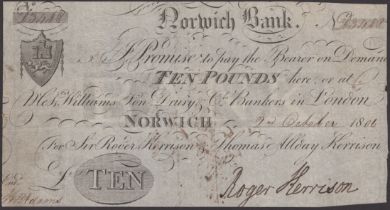 Norwich Bank.
I Promise to pay the Bearer on Demand
TEN POUNDS here, or at
Messrs Williams Son Drury & Co Bankers in London
NORWICH 2nd October 180
For Sir Roger Kerrison Thomas Allday Kerrison
£ TEN
Roger Kerrison